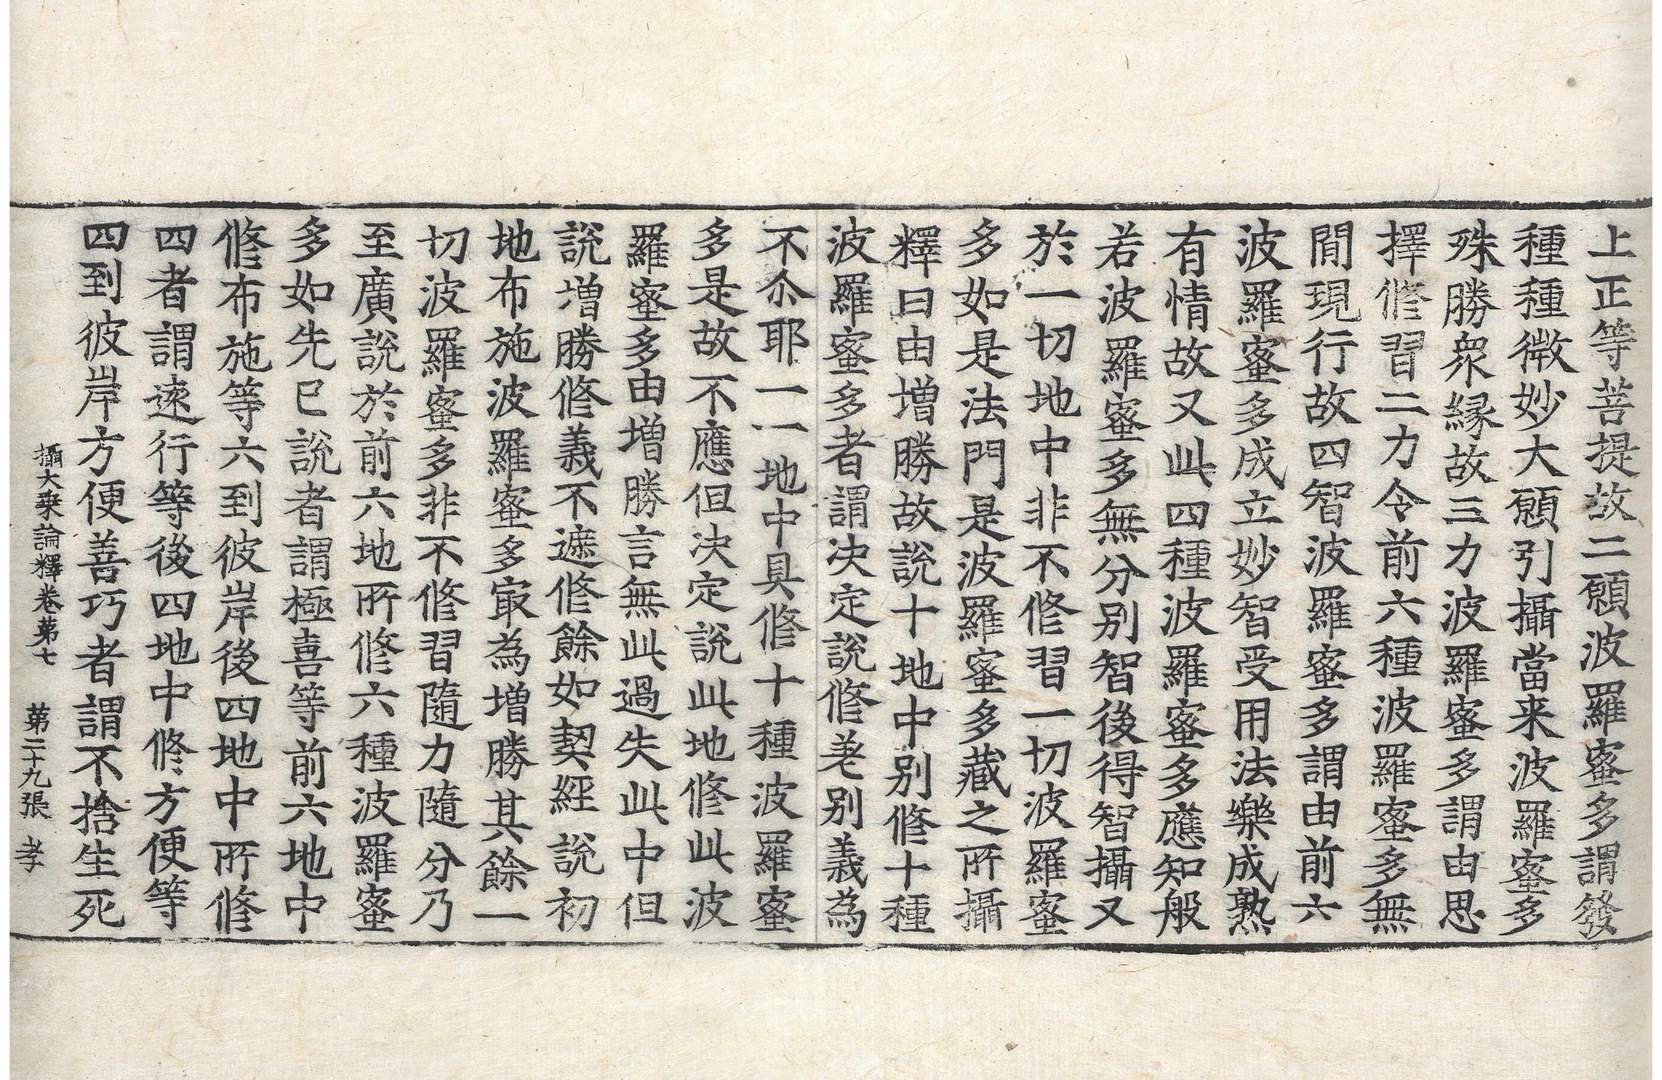 上正等菩提故二願波羅蜜多謂發
種種微妙大願引攝當来波羅蜜多
殊勝衆縁故三力波羅蜜多謂由思
擇修習二力令前六種波羅蜜多無
閒現行故四智波羅蜜多謂由前六
波羅蜜多成立妙智受用法樂成熟
有情故又此四種波羅蜜多應知般
若波羅蜜多無分别智後得智攝又
於一切地中非不修習一切波羅蜜
多如是法門是波羅蜜多藏之所攝
釋曰由增勝故説十地中别修十種
波羅蜜多者謂决定說修差別義為
不尒耶一一地中具修十種波羅蜜
多是故不應但决定說此地修此波
羅蜜多由增勝言無此過失此中但
說增勝修義不遮修餘如契經說初
地布施波羅蜜多㝡為增勝其餘一
切波羅蜜多非不修習隨力隨分乃
至廣說於前六地所修六種波羅蜜
多如先已說者謂極喜等前六地中
修布施等六到彼岸後四地中所修
四者謂遠行等後四地中修方便等
四到彼岸方便善巧者謂不捨生死
攝大乗論釋卷第七 第二十九張 孝